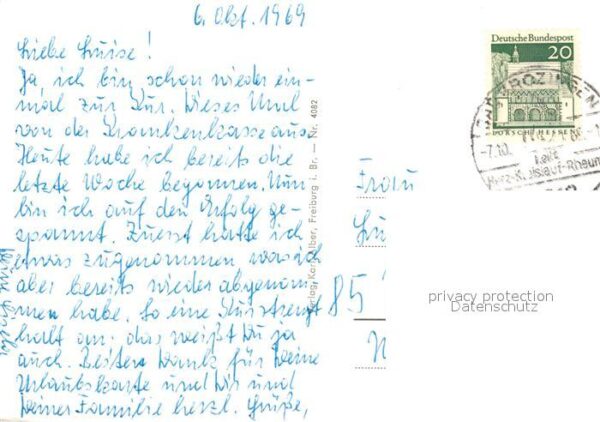 6. Okt. 1969
Liebe Luise!
Ja, ich bin schon wieder ein-
mal zur Kur. Dieses Mal
von der Krankenkasse aus.
Heute habe ich bereits die
letzte Woche begonnen. Nun
bin ich auf den Erfolg ge-
spannt. Zuerst hatte ich
etwas zugenommen was ich
aber bereits wieder abgenom-
men habe. So eine Kur strengt
halt an das weißt Du ja
auch. Besten Dank für Deine
Urlaubskarte und Dir und
Deiner Familie herzl. Grüße,
Deine
Verlag Karl Alber, Freiburg i. Br. — Nr. 4082
Deutsche Bundespost
20
LORSCH/HESSEN
-7.10.
Herz-Kreislauf-Rheum
Frau
Lu
85
N
privacy protection
Datenschutz